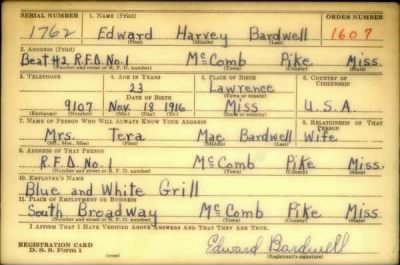 SERIAL NUMBER 1. NAME (Print) ORDER NUMBER
1762 Edward Harvey Bardwell 1607
(First) (Middle) (Last)
2. ADDRESS (Print)
Beat #2 R.F.D. No. 1 McComb Pike Miss.
(Number and street or R. F. D. number) (Town) (County) (State)
3. TELEPHONE 4. AGE IN YEARS 5. PLACE OF BIRTH 6. COUNTRY OF CITIZENSHIP
23 Lawrence
DATE OF BIRTH (Town or county)
9107 Nov. 18 1916 Miss U.S.A.
(Exchange) (Number) (Mo.) (Day) (Yr.) (State or country)
7. NAME OF PERSON WHO WILL ALWAYS KNOW YOUR ADDRESS 8. RELATIONSHIP OF THAT PERSON
Mrs. Tera Mae Bardwell Wife
(Mr., Mrs., Miss) (First) (Middle) (Last)
9. ADDRESS OF THAT PERSON
R.F.D. No. 1 McComb Pike Miss.
(Number and street or R. F. D. number) (Town) (County) (State)
10. EMPLOYER'S NAME
Blue and White Grill
11. PLACE OF EMPLOYMENT OR BUSINESS
South Broadway McComb Pike Miss.
(Number and street or R. F. D. number) (Town) (County) (State)
I AFFIRM THAT I HAVE VERIFIED ABOVE ANSWERS AND THAT THEY ARE TRUE.
REGISTRATION CARD
D. S. S. Form 1
Edward Bardwell
(Registrant's signature)